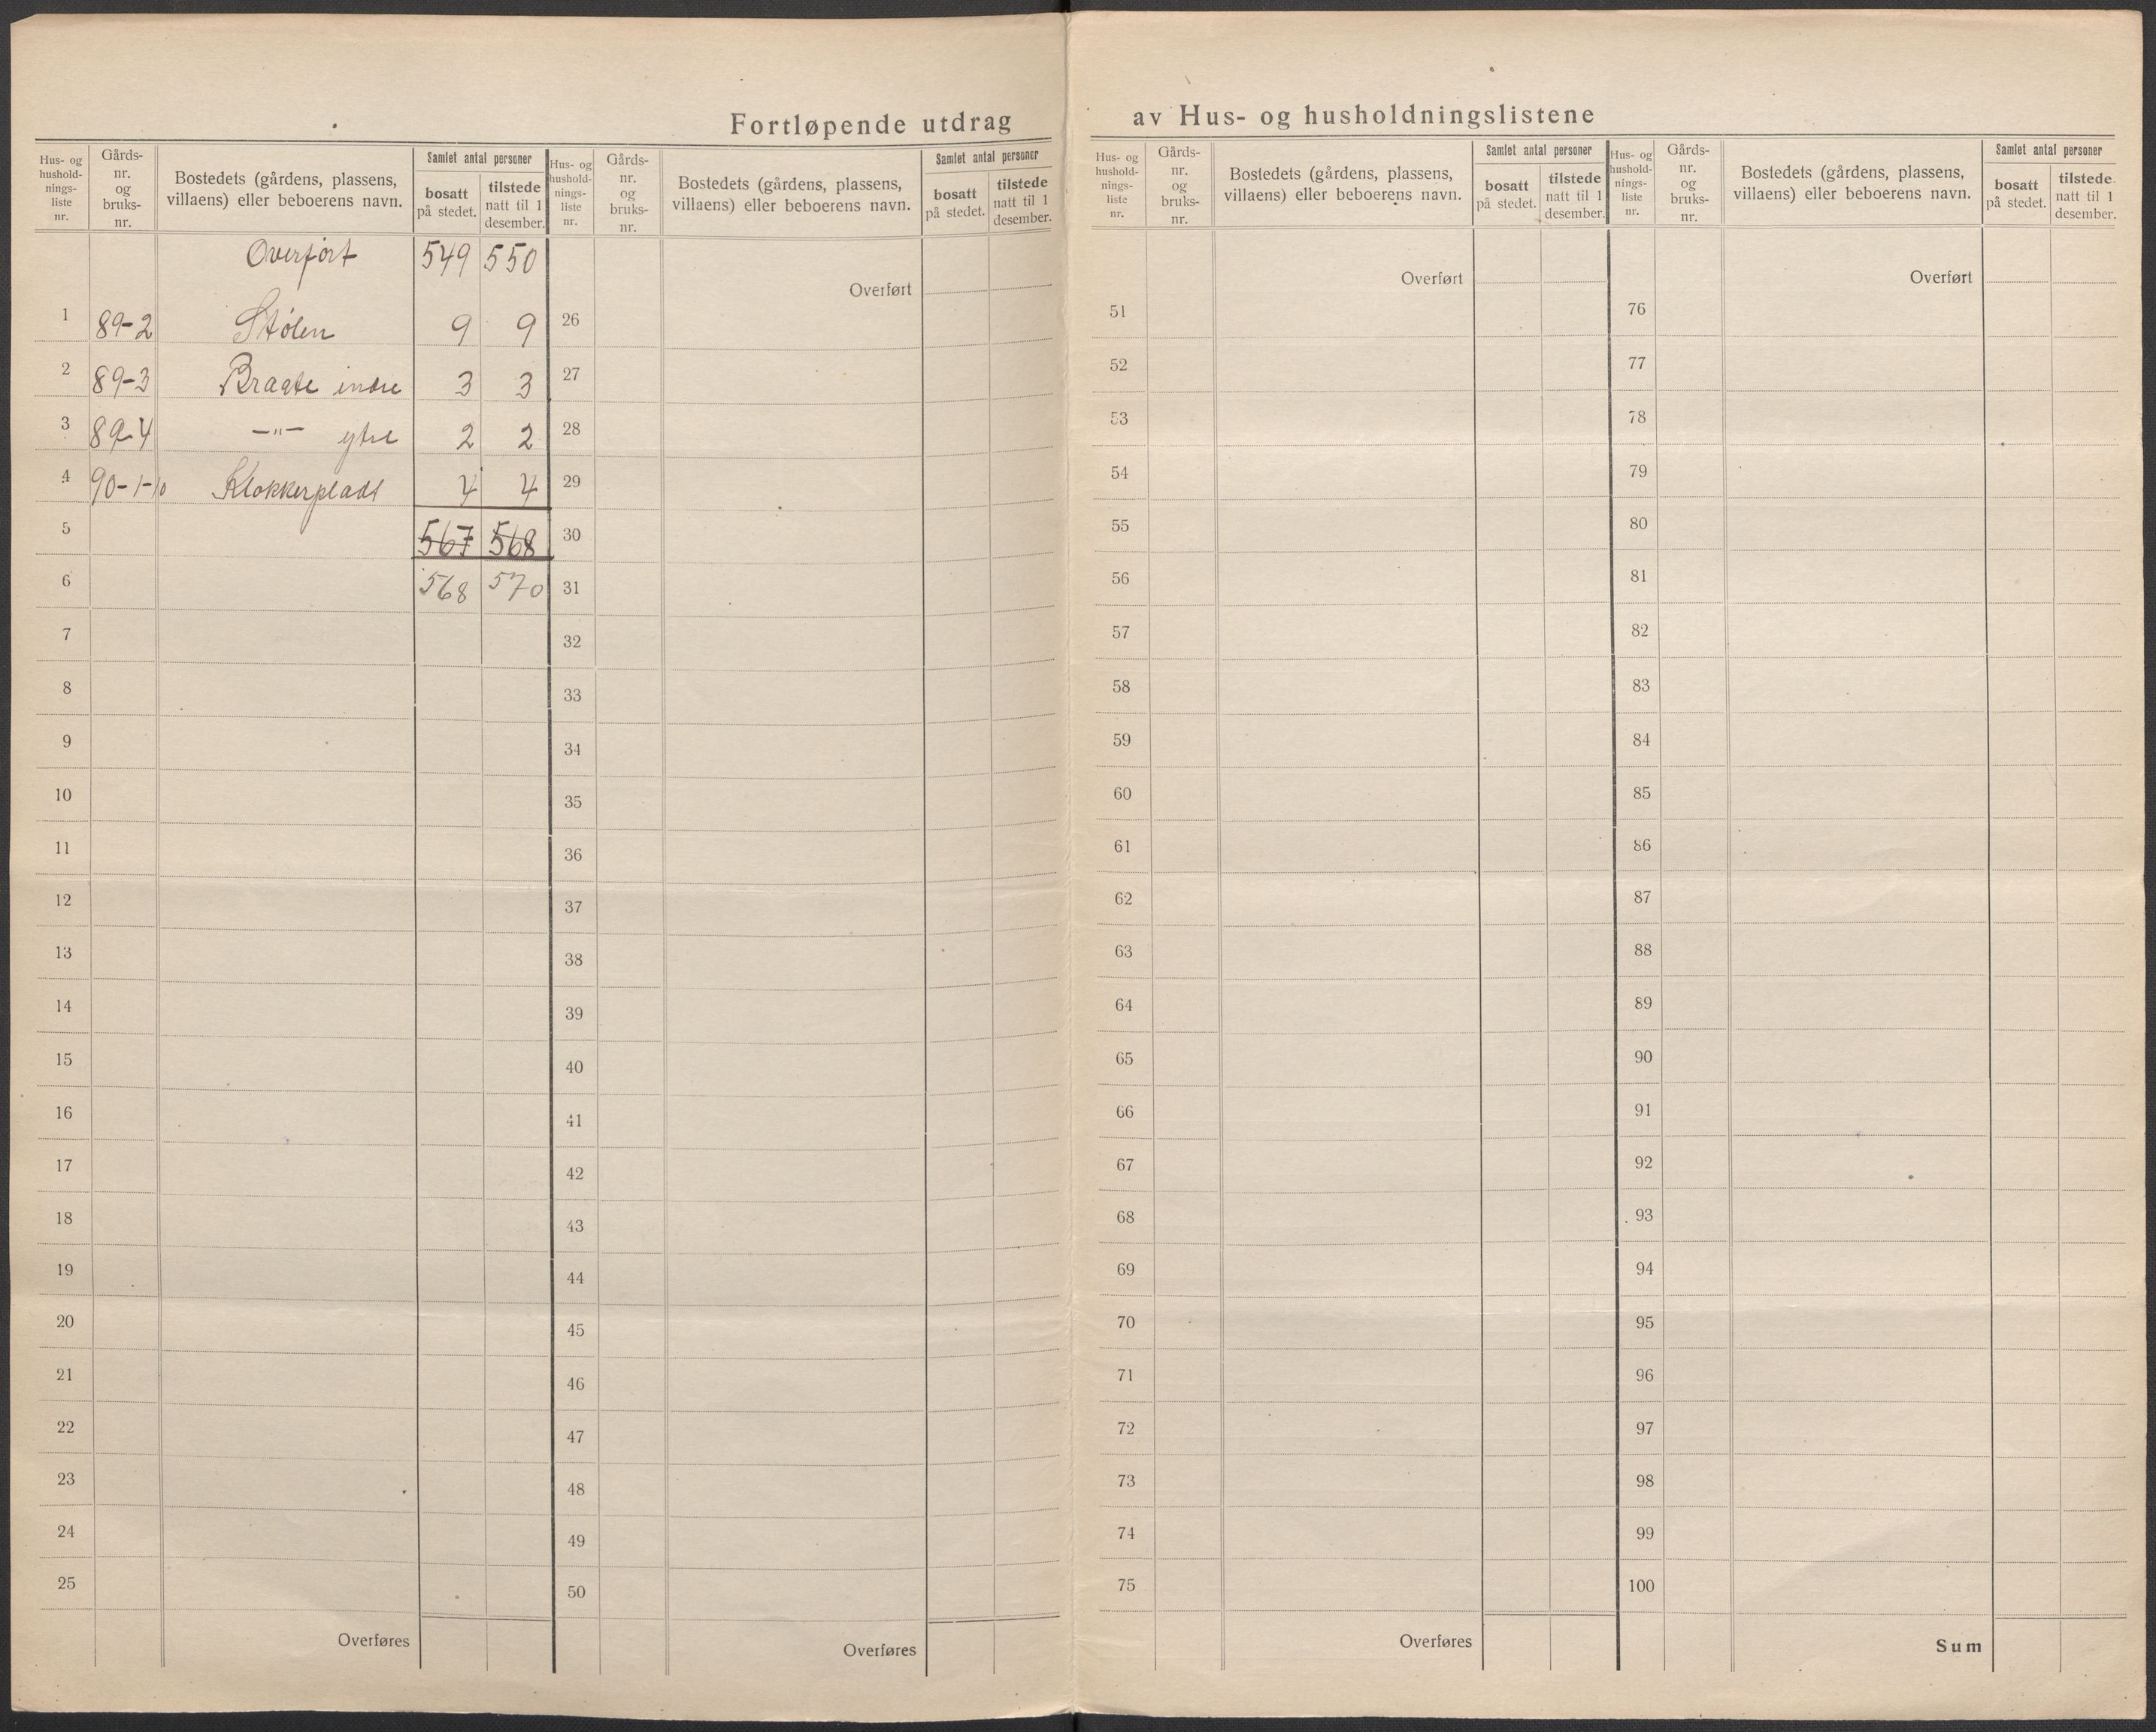 Fortløpende utdrag av Hus- og husholdningslistene
Hus- og hushold-nings-liste nr. Gårds-nr. og bruks-nr. Bostedets (gårdens, plassens, villaens) eller beboerens navn. Samlet antal personer bosatt på stedet. tilstede natt til 1 desember.
Overført 549 550
1 89-2 Stølen 9 9
2 89-3 Braate indre 3 3
3 89-4 —"— ytre 2 2
4 90-1-10 Klokkerplads 4 4
5 567 568
6 568 570
7
8
9
10
11
12
13
14
15
16
17
18
19
20
21
22
23
24
25
Overføres
Hus- og hushold-nings-liste nr. Gårds-nr. og bruks-nr. Bostedets (gårdens, plassens, villaens) eller beboerens navn. Samlet antal personer bosatt på stedet. tilstede natt til 1 desember.
Overført
26
27
28
29
30
31
32
33
34
35
36
37
38
39
40
41
42
43
44
45
46
47
48
49
50
Overføres
Hus- og hushold-nings-liste nr. Gårds-nr. og bruks-nr. Bostedets (gårdens, plassens, villaens) eller beboerens navn. Samlet antal personer bosatt på stedet. tilstede natt til 1 desember.
Overført
51
52
53
54
55
56
57
58
59
60
61
62
63
64
65
66
67
68
69
70
71
72
73
74
75
Overføres
Hus- og hushold-nings-liste nr. Gårds-nr. og bruks-nr. Bostedets (gårdens, plassens, villaens) eller beboerens navn. Samlet antal personer bosatt på stedet. tilstede natt til 1 desember.
Overført
76
77
78
79
80
81
82
83
84
85
86
87
88
89
90
91
92
93
94
95
96
97
98
99
100
Sum